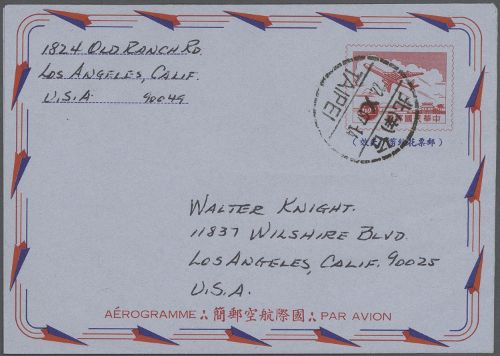 1824 OLD RANCH RD.
LOS ANGELES, CALIF.
U.S.A 90049
TAIPEI
中華民國郵票
(郵票花紋剪下無效)
WALTER KNIGHT.
11837 WILSHIRE BLVD.
LOS ANGELES, CALIF. 90025
U.S.A.
AÉROGRAMME 簡郵空航際國 PAR AVION